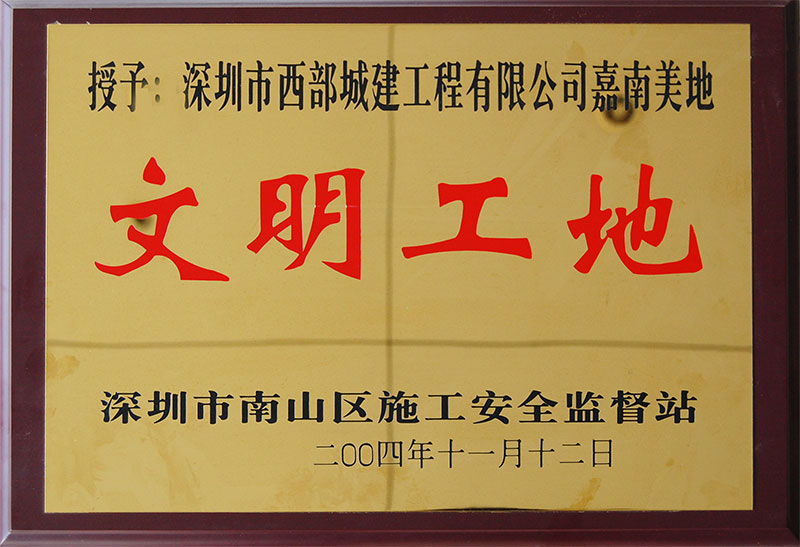 授予：深圳市西部城建工程有限公司嘉南美地
文明工地
深圳市南山区施工安全监督站
二00四年十一月十二日